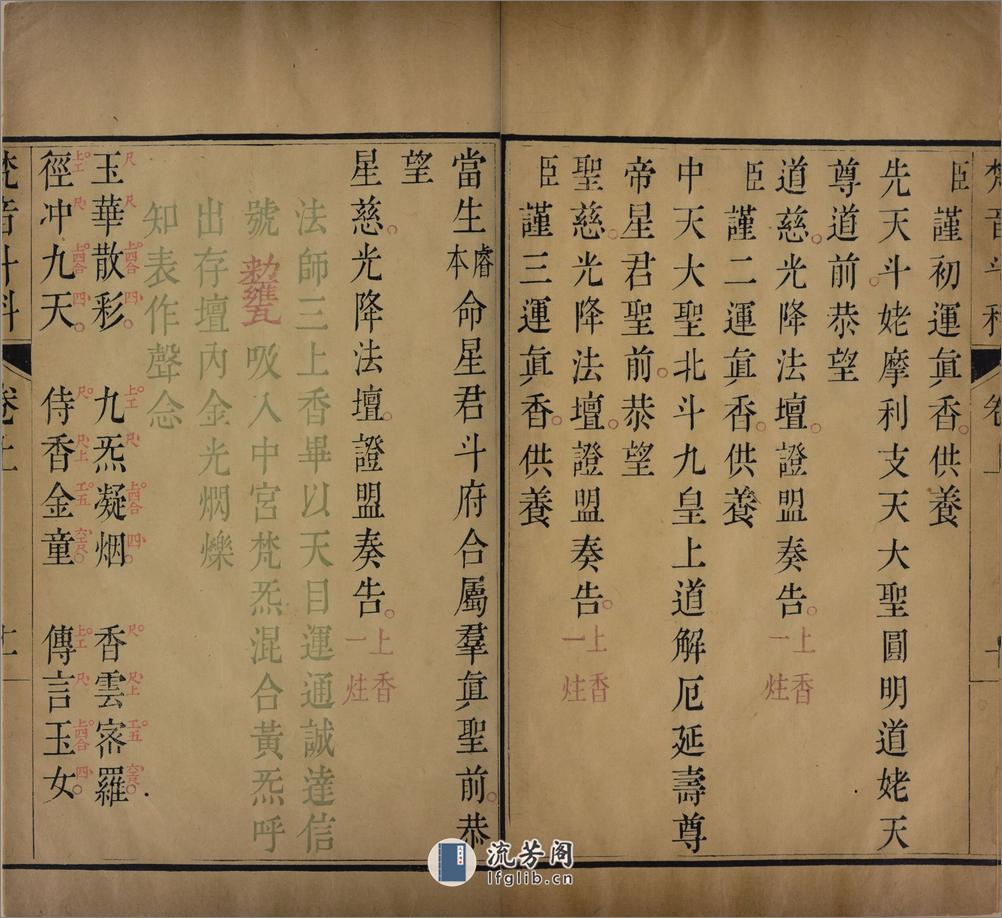 梵音斗科
卷上
十
臣謹初運眞香供養
先天斗姥摩利支天大聖圓明道姥天
尊道前恭望
道慈光降法壇證盟奏告上香一炷
臣謹二運眞香供養
中天大聖北斗九皇上道解厄延壽尊
帝星君聖前恭望
聖慈光降法壇證盟奏告上香一炷
臣謹三運眞香供養
當生睿本命星君斗府合屬羣眞聖前恭
望
星慈光降法壇證盟奏告上香一炷
法師三上香畢以天目運通誠達信
號吸入中宮梵炁混合黃炁呼
出存壇內金光焖爍
知表作聲念
玉華散彩 九炁凝烟 香雲密羅
徑冲九天 侍香金童 傳言玉女
梵音斗科
卷上
十一
流芳阁
lfglib.cn